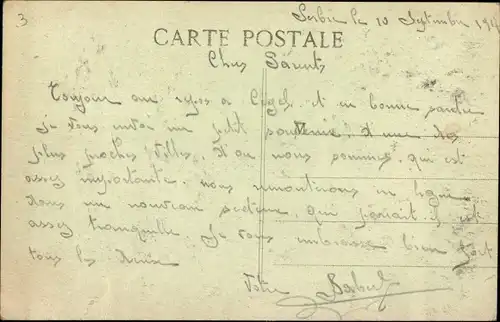 3
Serbie le 10 Septembre
CARTE POSTALE
Chers Parents
Toujour au repos a et en bonne santée
je vous envoi un petit souvenir d'une des
plus proches villes d'ou nous sommes qui est
assez importante nous remonterons en ligne
dans un nouveau secteur qui parait il est
assez tranquille je vous embrasse bien fort
tous les deux
Votre